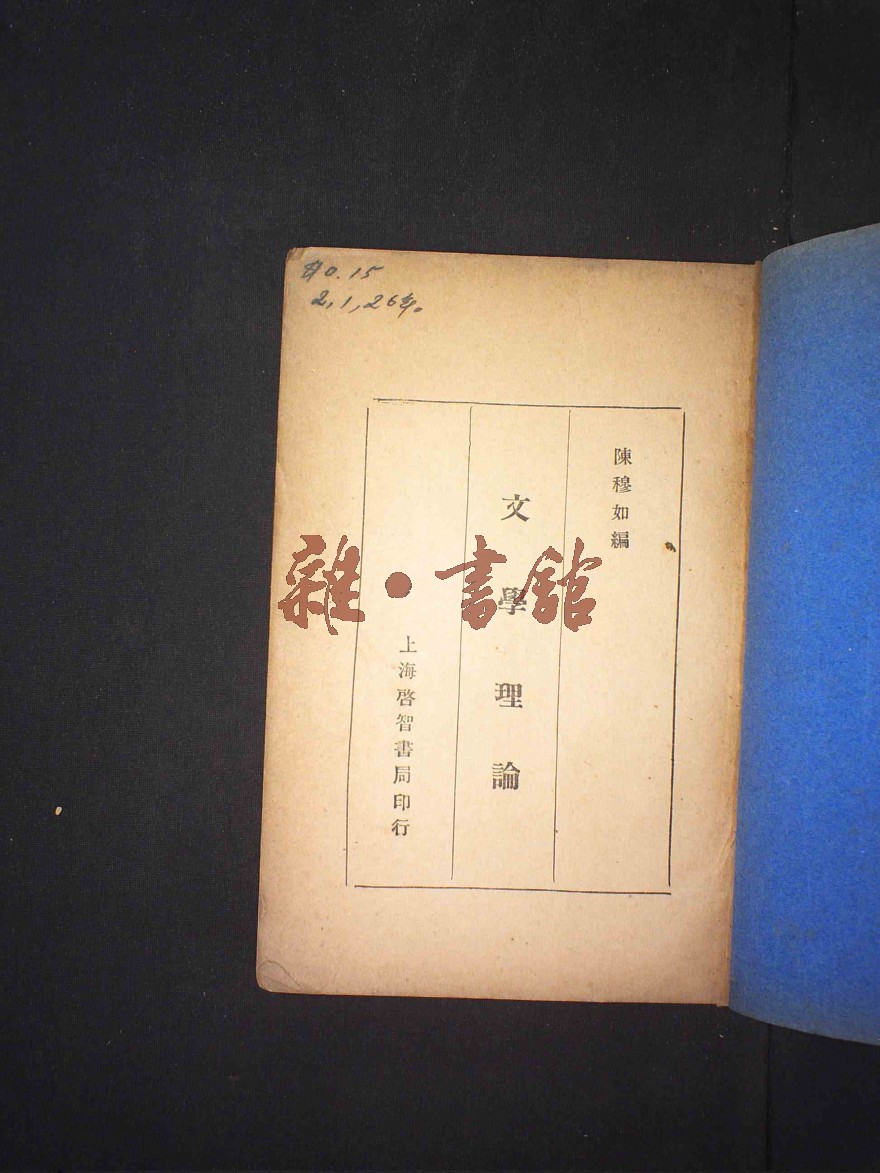 $0.15
2,1,26年。
陳穆如編
文學理論
上海啓智書局印行
雜·書館